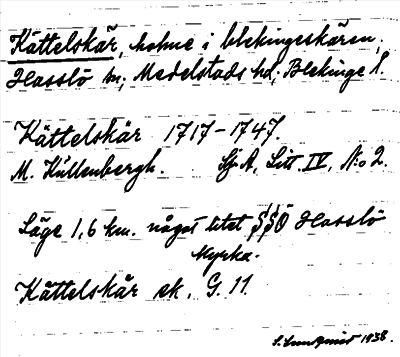 Kättelskär, holme i blekingeskären,
Hasslö sn; Medelstads hd; Blekinge l.
Kättelskär 1717-1747.
M. Kullenbergh. Sj. A, Litt. IV, No 2.
Läge 1,6 km. något litet SSÖ Hasslö
kyrka.
Kättelskär ek. G. 11.
S. Lundquist 1938.